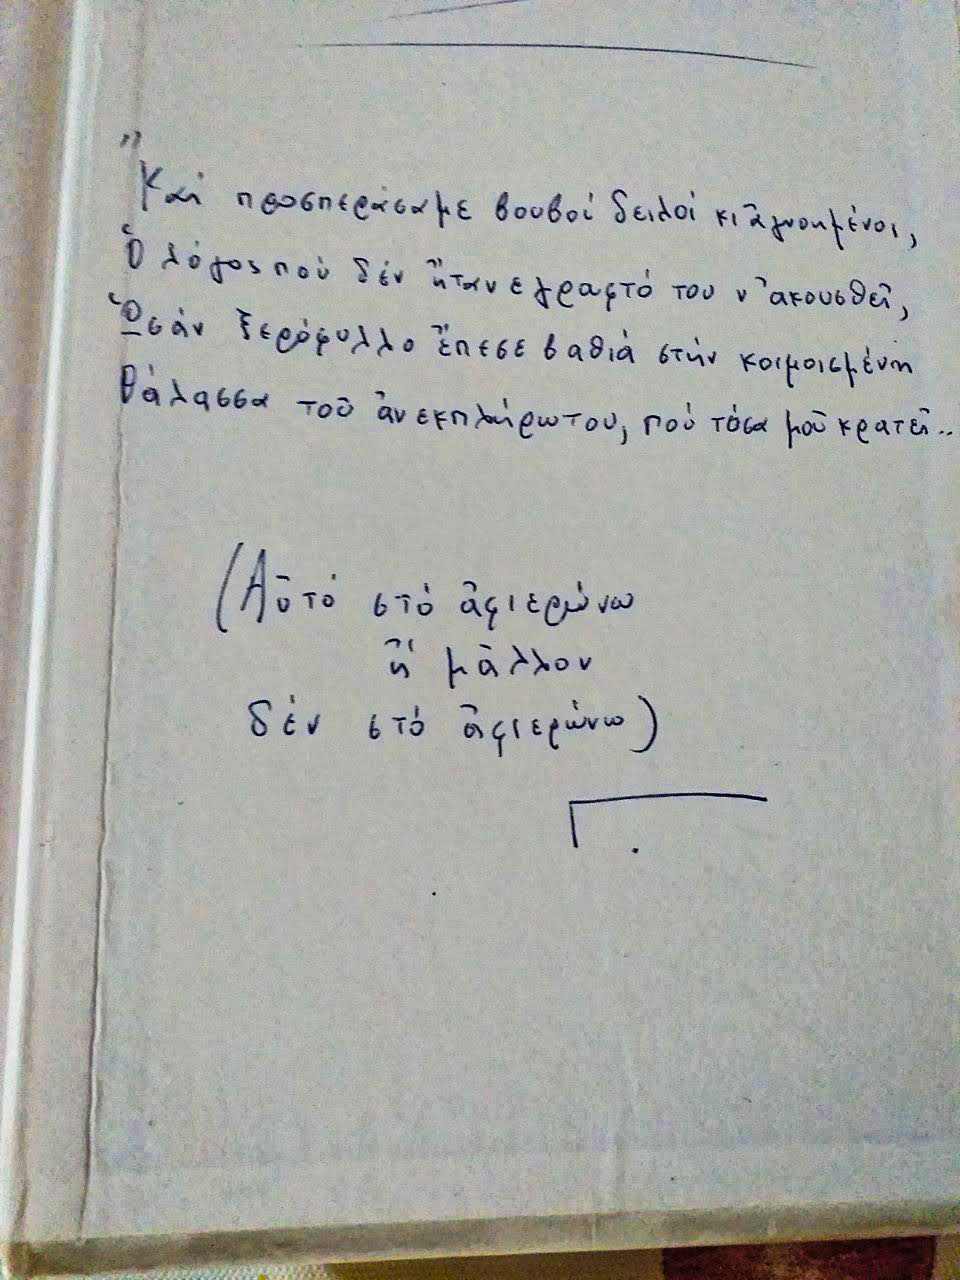 "
Καί προσπεράσαμε βουβοί δειλοί κι ἀγνοημένοι,
Ὁ λόγος πού δέν ἤταν εγραφτό του ν' ακουσθεῖ,
Ὡσάν ξερόφυλλο ἔπεσε βαθιά στήν κοιμοισμένη
θάλασσα τοῦ ἀνεκπλήρωτου, πού τόσα μοῦ κρατεῖ..
(Αὐτό στό ἀφιερώνω
ἤ μᾶλλον
δέν στό ἀφιερώνω)